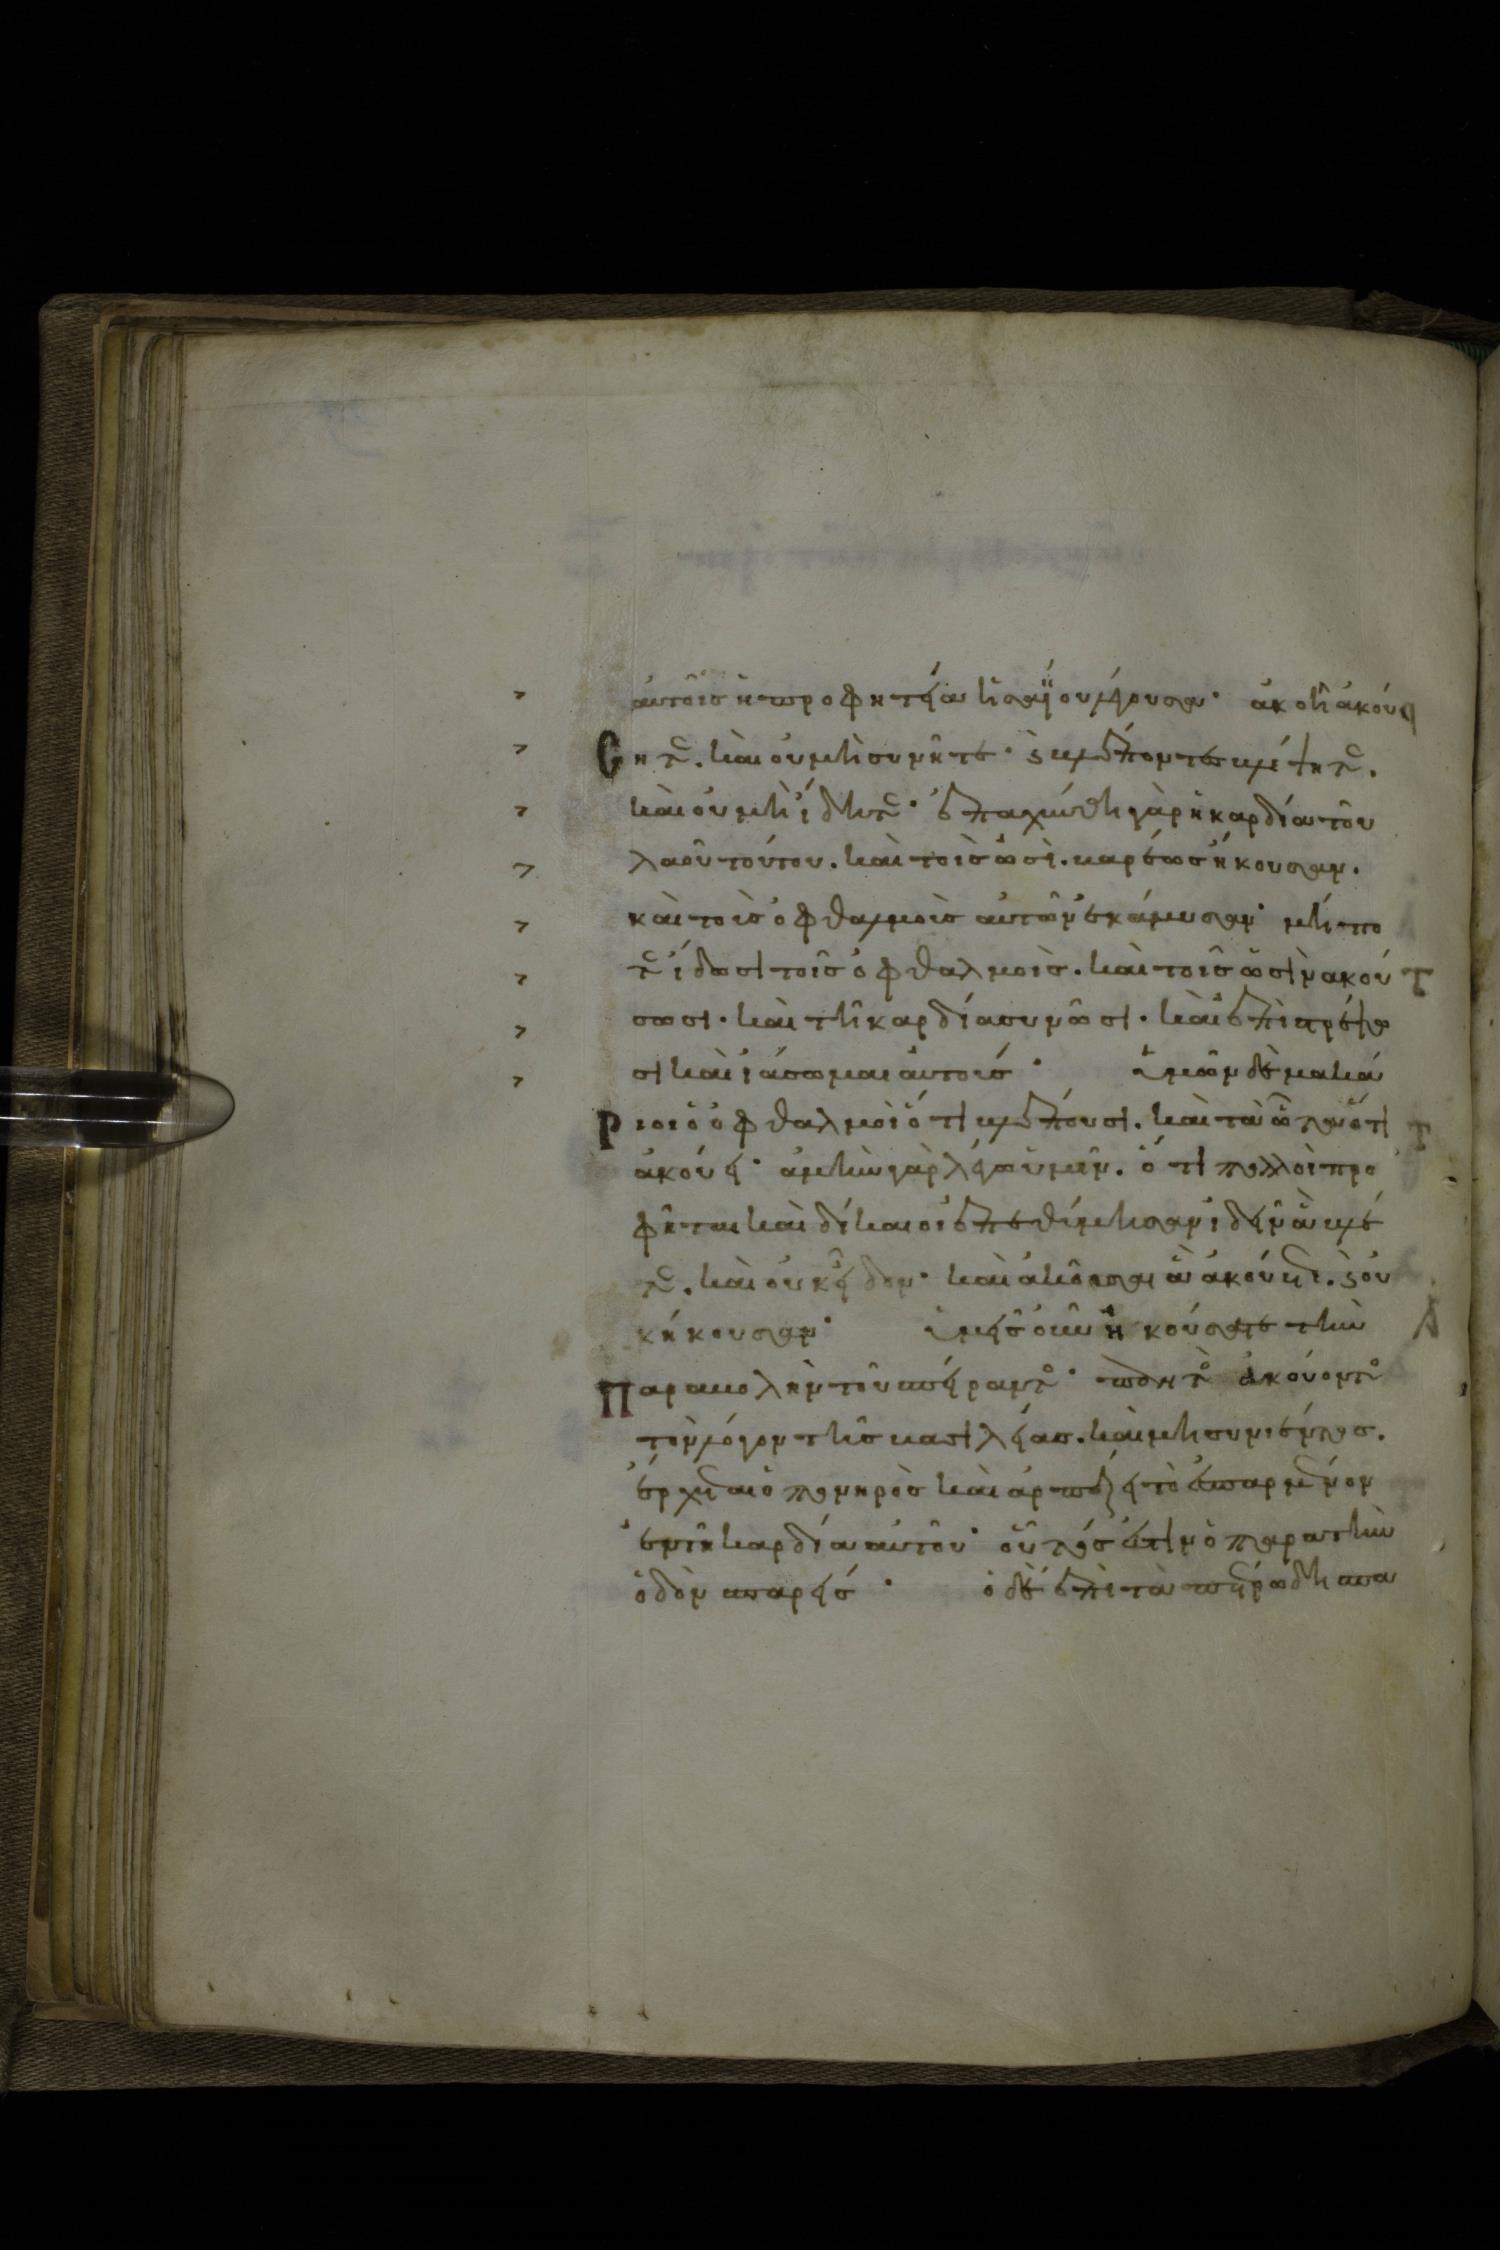 αὐτοῖς ἡ προφητεία ἡσαΐου λέγουσα· ἀκοῆ ἀκού
σητε. καὶ οὐ μὴ συνῆτε· ϗ βλέποντες βλέψητε.
καὶ οὐ μὴ ἴδητε· ἐπαχύνθη γὰρ ἡ καρδία τοῦ
λαοῦ τούτου. καὶ τοῖς ὠσὶ. βαρέως ἤκουσαν.
καὶ τοὺς ὀφθαλμοὺς αὐτῶν ἐκάμυσαν· μήπο
τε ἴδωσι τοῖς ὀφθαλμοῖς. καὶ τοῖς ὠσὶν ἀκού
σωσι. καὶ τῆ καρδία συνῶσι. καὶ ἐπιστρέψω
σι καὶ ἰάσωμαι αὐτούς· ὑμῶν δὲ μακά
ριοι οἱ ὀφθαλμοὶ ὅτι βλέπουσι. καὶ τὰ ὦτα ὅτι
ἀκούει· ἀμὴν γὰρ λέγω ὑμῖν. ὅτι πολλοὶ προ
φῆται καὶ δίκαιοι ἐπεθύμησαν ἰδεῖν ἃ βλέπε
τε. καὶ οὐκ εἶδον· καὶ ἀκοῦσαι ἃ ἀκούετε. ϗ οὐ
κ ἤκουσαν· ὑμεῖς οὖν ἠκούσατε τὴν
παραβολὴν τοῦ σπείραντος· παντὸς ἀκούοντος
τὸν λόγον τῆς βασιλείας. καὶ μὴ συνιέντος.
ἔρχεται ὁ πονηρὸς καὶ ἁρπάζει τὸ ἐσπαρμένον
ἐν τῆ καρδία αὐτοῦ· οὗτός ἐστιν ὁ παρὰ τὴν
ὁδὸν σπαρείς· ὁ δὲ ἐπὶ τὰ πετρώδη σπα